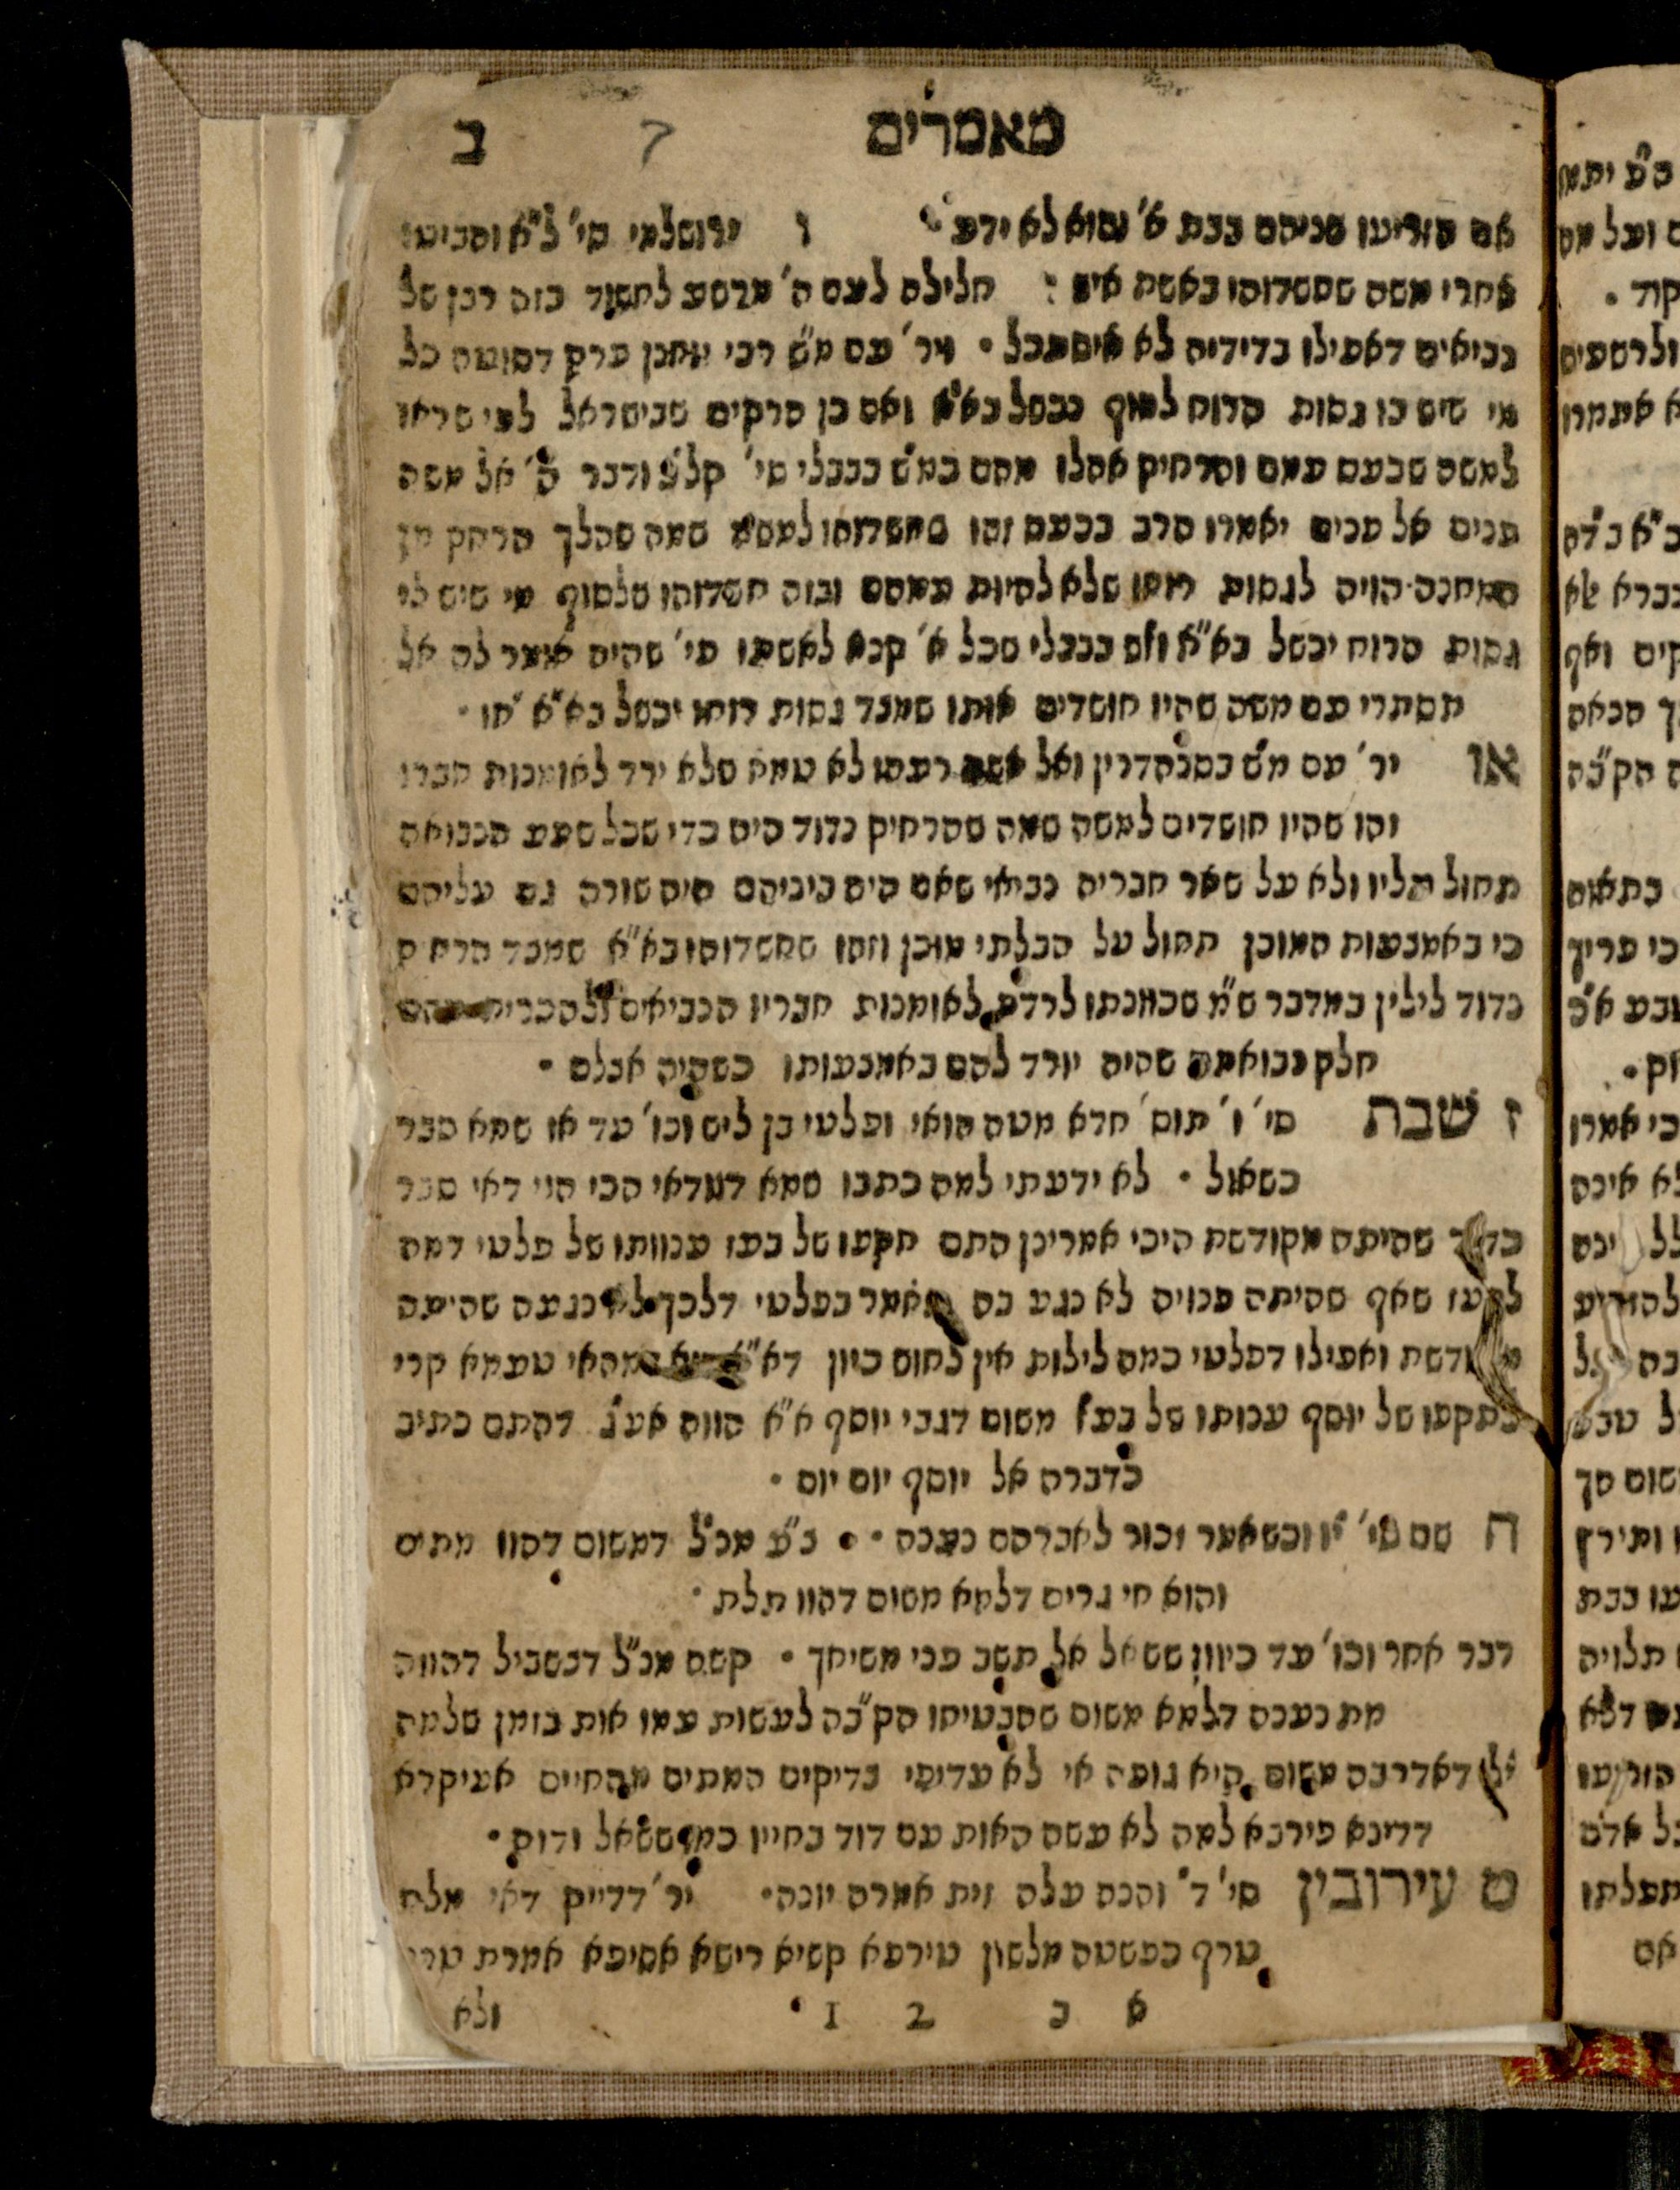 מאמרים ב
אם הזריעו שניהם בבת א' והוא לא ידע ו ירושלמי סי' ל"א והביטו
אחרי משה שחשדוהו באשת איש : חלילה לעם ה' מרשע לחשוד בזה רבן של
נביאים דאפילו בדידיה לא איסתכל • ויר' עם מ"ש רבי יוחנן פרק דסוטה כל
מי שיש בו גסות הרוח לסוף נכשל בא"א ואם כן הרקים שבישראל לפי שראו
למשה שכעס עמם והרחיק אהלו מהם כמ"ש בבבלי סי' קל"ט ודבר ה' אל משה
פנים אל פנים יאמרו הרב בכעס וזהו שחשדוהו למשה שמה שהלך הרחק מן
המחנה הויה לגסות רוחו שלא להיות עמהם ובזה חשדוהו שלסוף מי שיש לו
גסות הרוח יכשל בא"א וזה בבבלי שכל א' קנא לאשתו פי' שהיה אומר לה אל
תסתרי עם משה שהיו חושדים אותו שמצד גסות רוחו יכשל בא"א וזהו •
או יר' עם מ"ש בסנהדרין ואל אשת רעהו לא טמא שלא ירד לאומנות חברו
וזהו שהיו חושדים למשה שמה שהרחיק נדוד היה כדי שכל שפע הנבואה
תחול עליו ולא על שאר חבריה נביאי שאם היה ביניהם היה שורה גם עליהם
כי באמצעות המוכן תחול על הבלתי מוכן וזהו שחשדוהו בא"א שמצד הרחיק
נדוד לילין במדבר ש"מ שכוונתו לרדת לאומנות חבריו הנביאים ולהכרית מהם
חלק נבואתם שהיה יורד להם באמצעותו כשהיה אצלם •
ז שבת סי' ו' תוס' חדא מטה הואי ופלטי בן ליש וכו' עד או שמא סבר
כשאול • לא ידעתי למה כתבו שמא דודאי הכי הוי דאי סבר
כדוד שהיתה מקודשת היכי אמרינן התם תקפו של בעז ענוותו של פלטי דמה
לבעז שאף שהיתה פנויה לא נגע בה תאמר בפלטי דלכך לא נגעה שהיתה
מקודשת ואפילו דפלטי כמה לילות אין לחוש כיון דא"א היא דמהאי טעמא קרי
לתקפו של יוסף ענותו של בעז משום דגבי יוסף א"א הווה אע"ג דהתם כתיב
כדברה אל יוסף יום יום •
ח שם סי' י"ו וכשאמר זכור לאברהם נענה • • צ"ע מנ"ל דמשום דהוו מתים
והוא חי גרים דלמא משום דהוו תלת •
דבר אחר וכו' עד כיוון ששאל אל תשב פני משיחך • קשה מנ"ל דבשביל דהווה
מת נענה דלמא משום שהבטיחו הק"בה לעשות עמו אות בזמן שלמה
י"ל דאדרבה משום היא גופה אי לא עדיפי צדיקים המתים מהחיים אעיקרא
דדינא פירכא למה לא עשה האות עם דוד בחייו כמו ששאל ודוק •
ט עירובין סי' ד' והנה עלה זית אמרה יונה • יר' דדייק דאי מלת
טרף כפשטה מלשון טירפא קשיא רישא אסיפא אמרת טרף
א ב 2 1 ולא